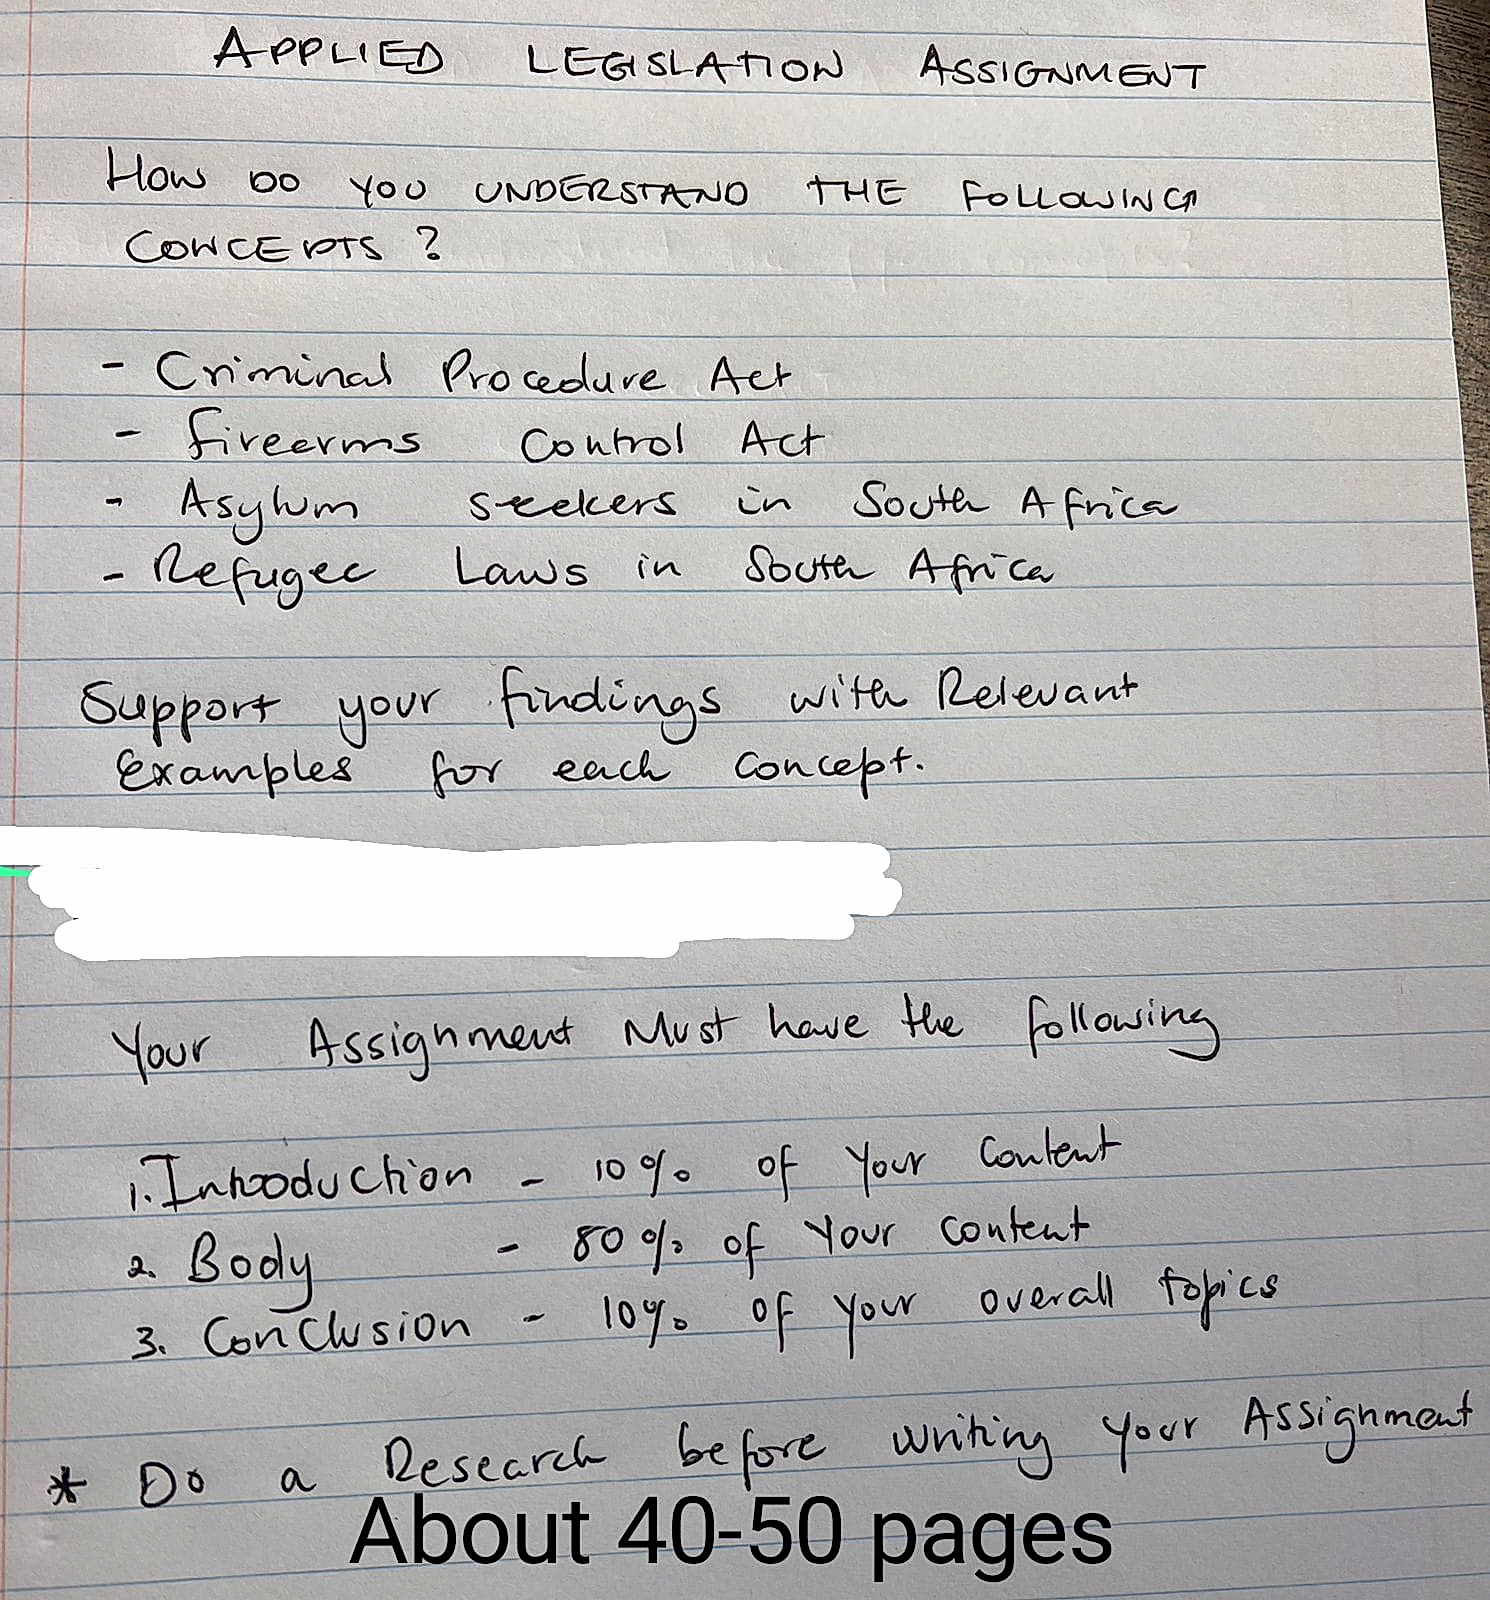 APPLIED LEGISLATION ASSIGNMENT
HOW DO YOU UNDERSTAND THE FOLLOWING
CONCEPTS ?
- Criminal Procedure Act
- Fireerms Control Act
- Asylum seekers in South Africa
- Refugee Laws in South Africa
Support your findings with Relevant
Examples for each concept.
Your Assignment Must have the following
1. Introduction - 10% of Your Content
2. Body - 80% of Your content
3. Conclusion - 10% of your overall topics
* Do a Research before writing your Assignment
About 40-50 pages